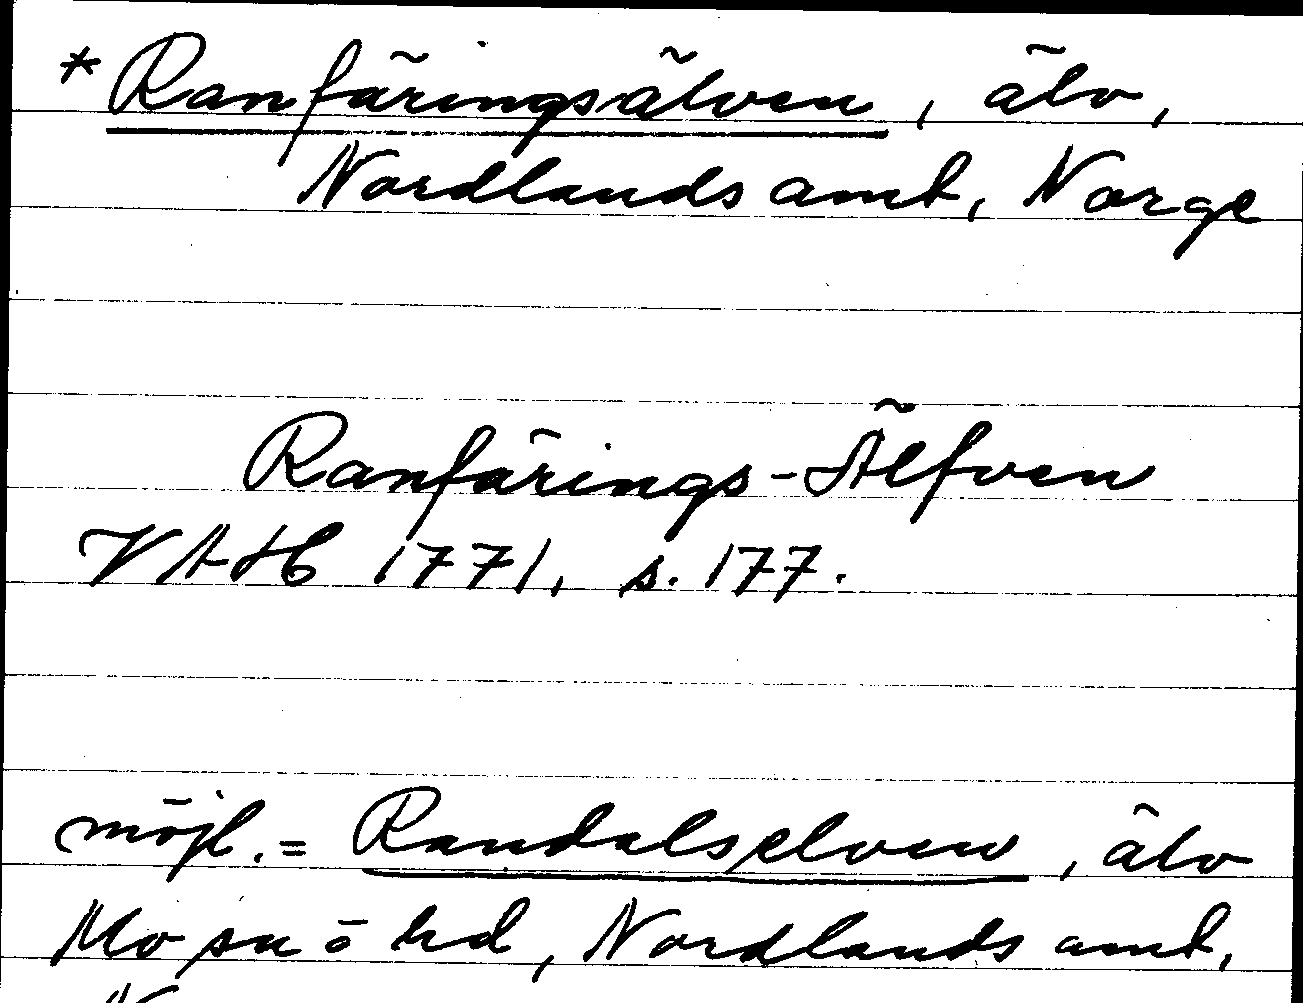 *Ranfäringsälven, älv,
Nordlands amt, Norge
Ranfärings-Älfven
VAH 1771, s. 177.
möjl. = Randalselven, älv
Mo sn o hd, Nordlands amt,